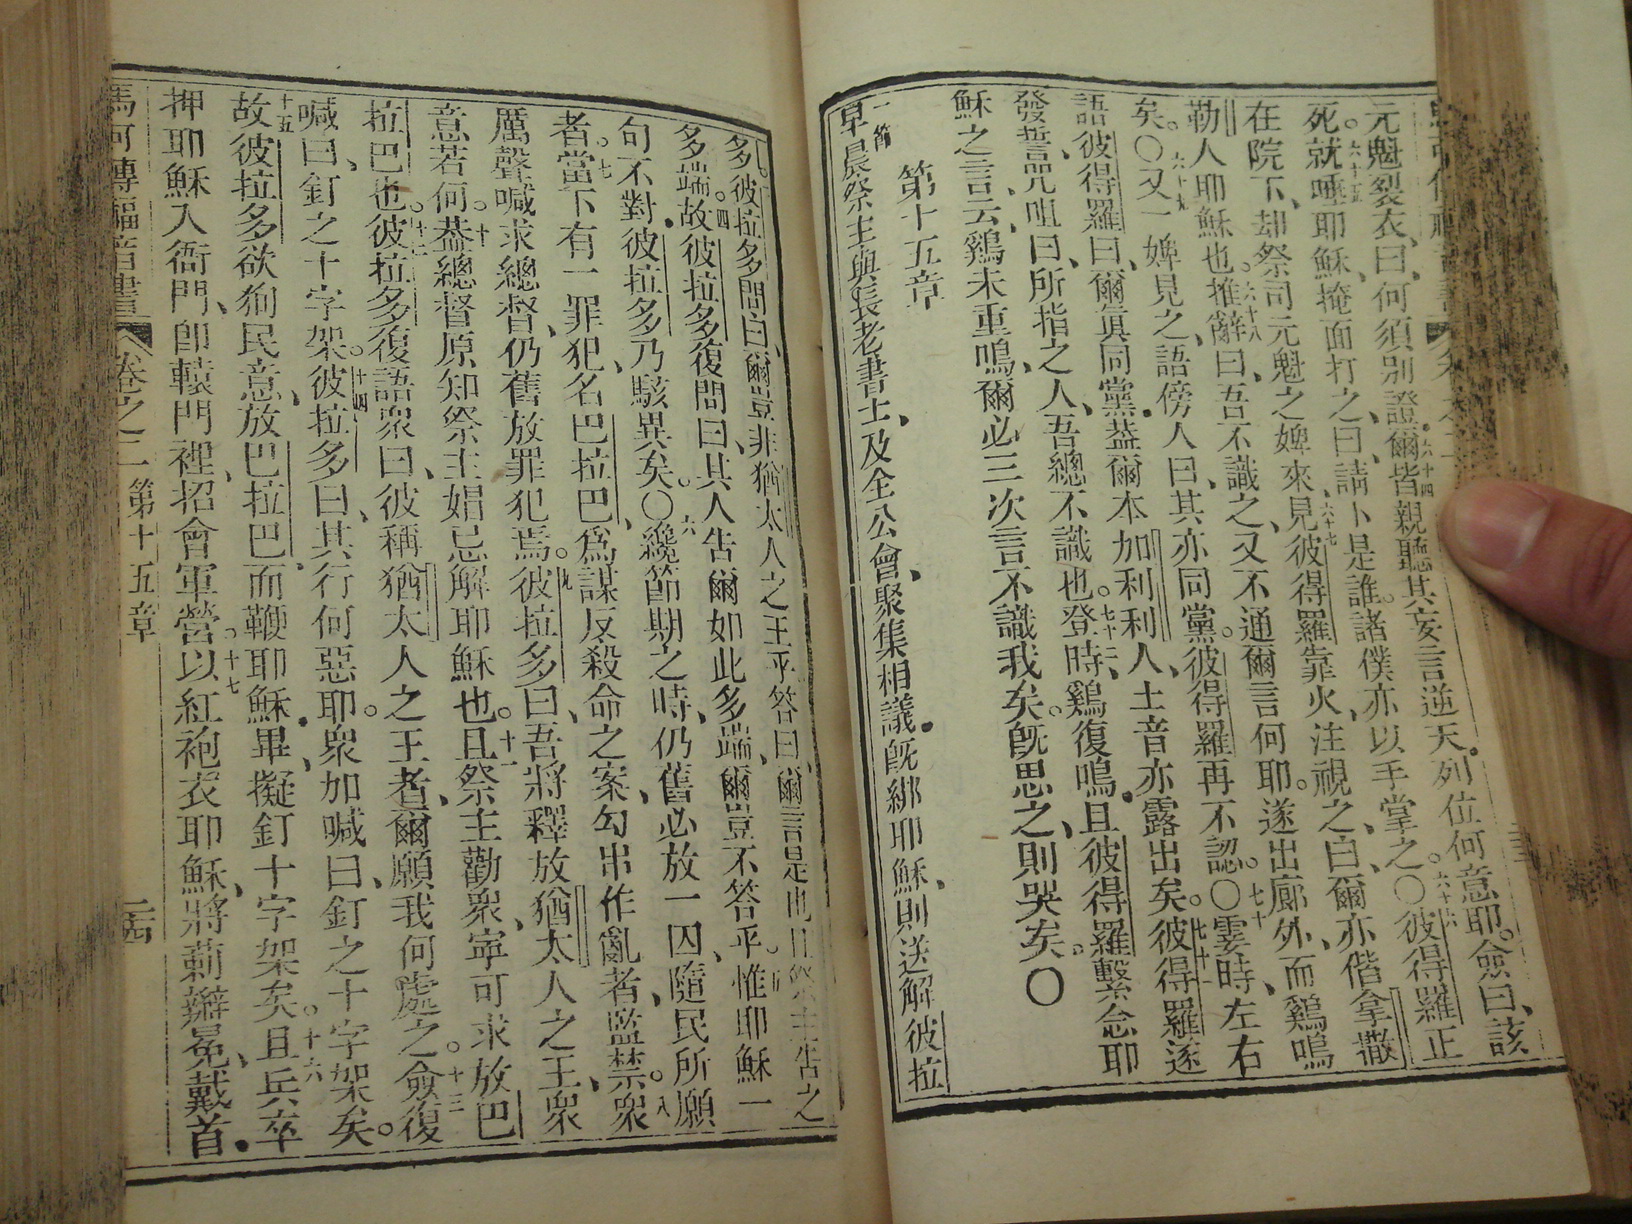 元魁裂衣、曰、何須別證。六十四爾皆親聽其妄言逆天。列位何意耶。僉曰、該
死。六十五就唾耶穌、掩面打之、曰、請卜是誰。諸僕亦以手掌之。〇六十六彼得羅正
在院下、却祭司元魁之婢來見、六十七彼得羅靠火、注視之、曰、爾亦偕拿撒
勒人耶穌也。六十八推辭曰、吾不識之、又不通爾言何耶。遂出廊外、而鷄鳴
矣。〇六十九又一婢見之、語傍人曰、其亦同黨。彼得羅再不認。〇七十霎時、左右
語彼得羅曰、爾眞同黨。葢爾本加利利人、土音亦露出矣。七十一彼得羅遂
發誓咒咀曰、所指之人、吾總不識也。七十二登時、鷄復鳴。且彼得羅繫念耶
穌之言、云、鷄未重鳴、爾必三次言不識我矣。旣思之、則哭矣。〇
第十五章
一節早晨祭主與長老書士、及全公會、聚集相議。旣綁耶穌、則送解彼拉
多。彼拉多問曰、爾豈非猶太人之王乎、答曰、爾言是也且祭主告之
多端。四故彼拉多復問曰、其人告爾如此多端、爾豈不答乎。惟耶穌一
句不對。彼拉多乃駭異矣。〇六纔節期之時、仍舊必放一囚、隨民所願
者。七當下有一罪犯、名巴拉巴、爲謀反殺命之案、勾串作亂者、監禁。八衆
厲聲喊求總督、仍舊放罪犯焉。九彼拉多曰、吾將釋放猶太人之王、衆
意若何。十葢總督原知祭主娼忌解耶穌也。十一且祭主勸衆、寧可求放巴
拉巴也。十二彼拉多復語衆曰、彼稱猶太人之王者、爾願我何處之。十三僉復
喊曰、釘之十字架。十四彼拉多曰、其行何惡耶。衆加喊曰、釘之十字架矣。
十五故彼拉多欲狥民意、放巴拉巴、而鞭耶穌。畢、擬釘十字架矣。十六且兵卒
押耶穌入衙門、卽轅門裡、招會軍營。十七以紅袍衣耶穌、將莿辮冕、戴首。
馬可傳福音書 卷之二 第十五章 二十四